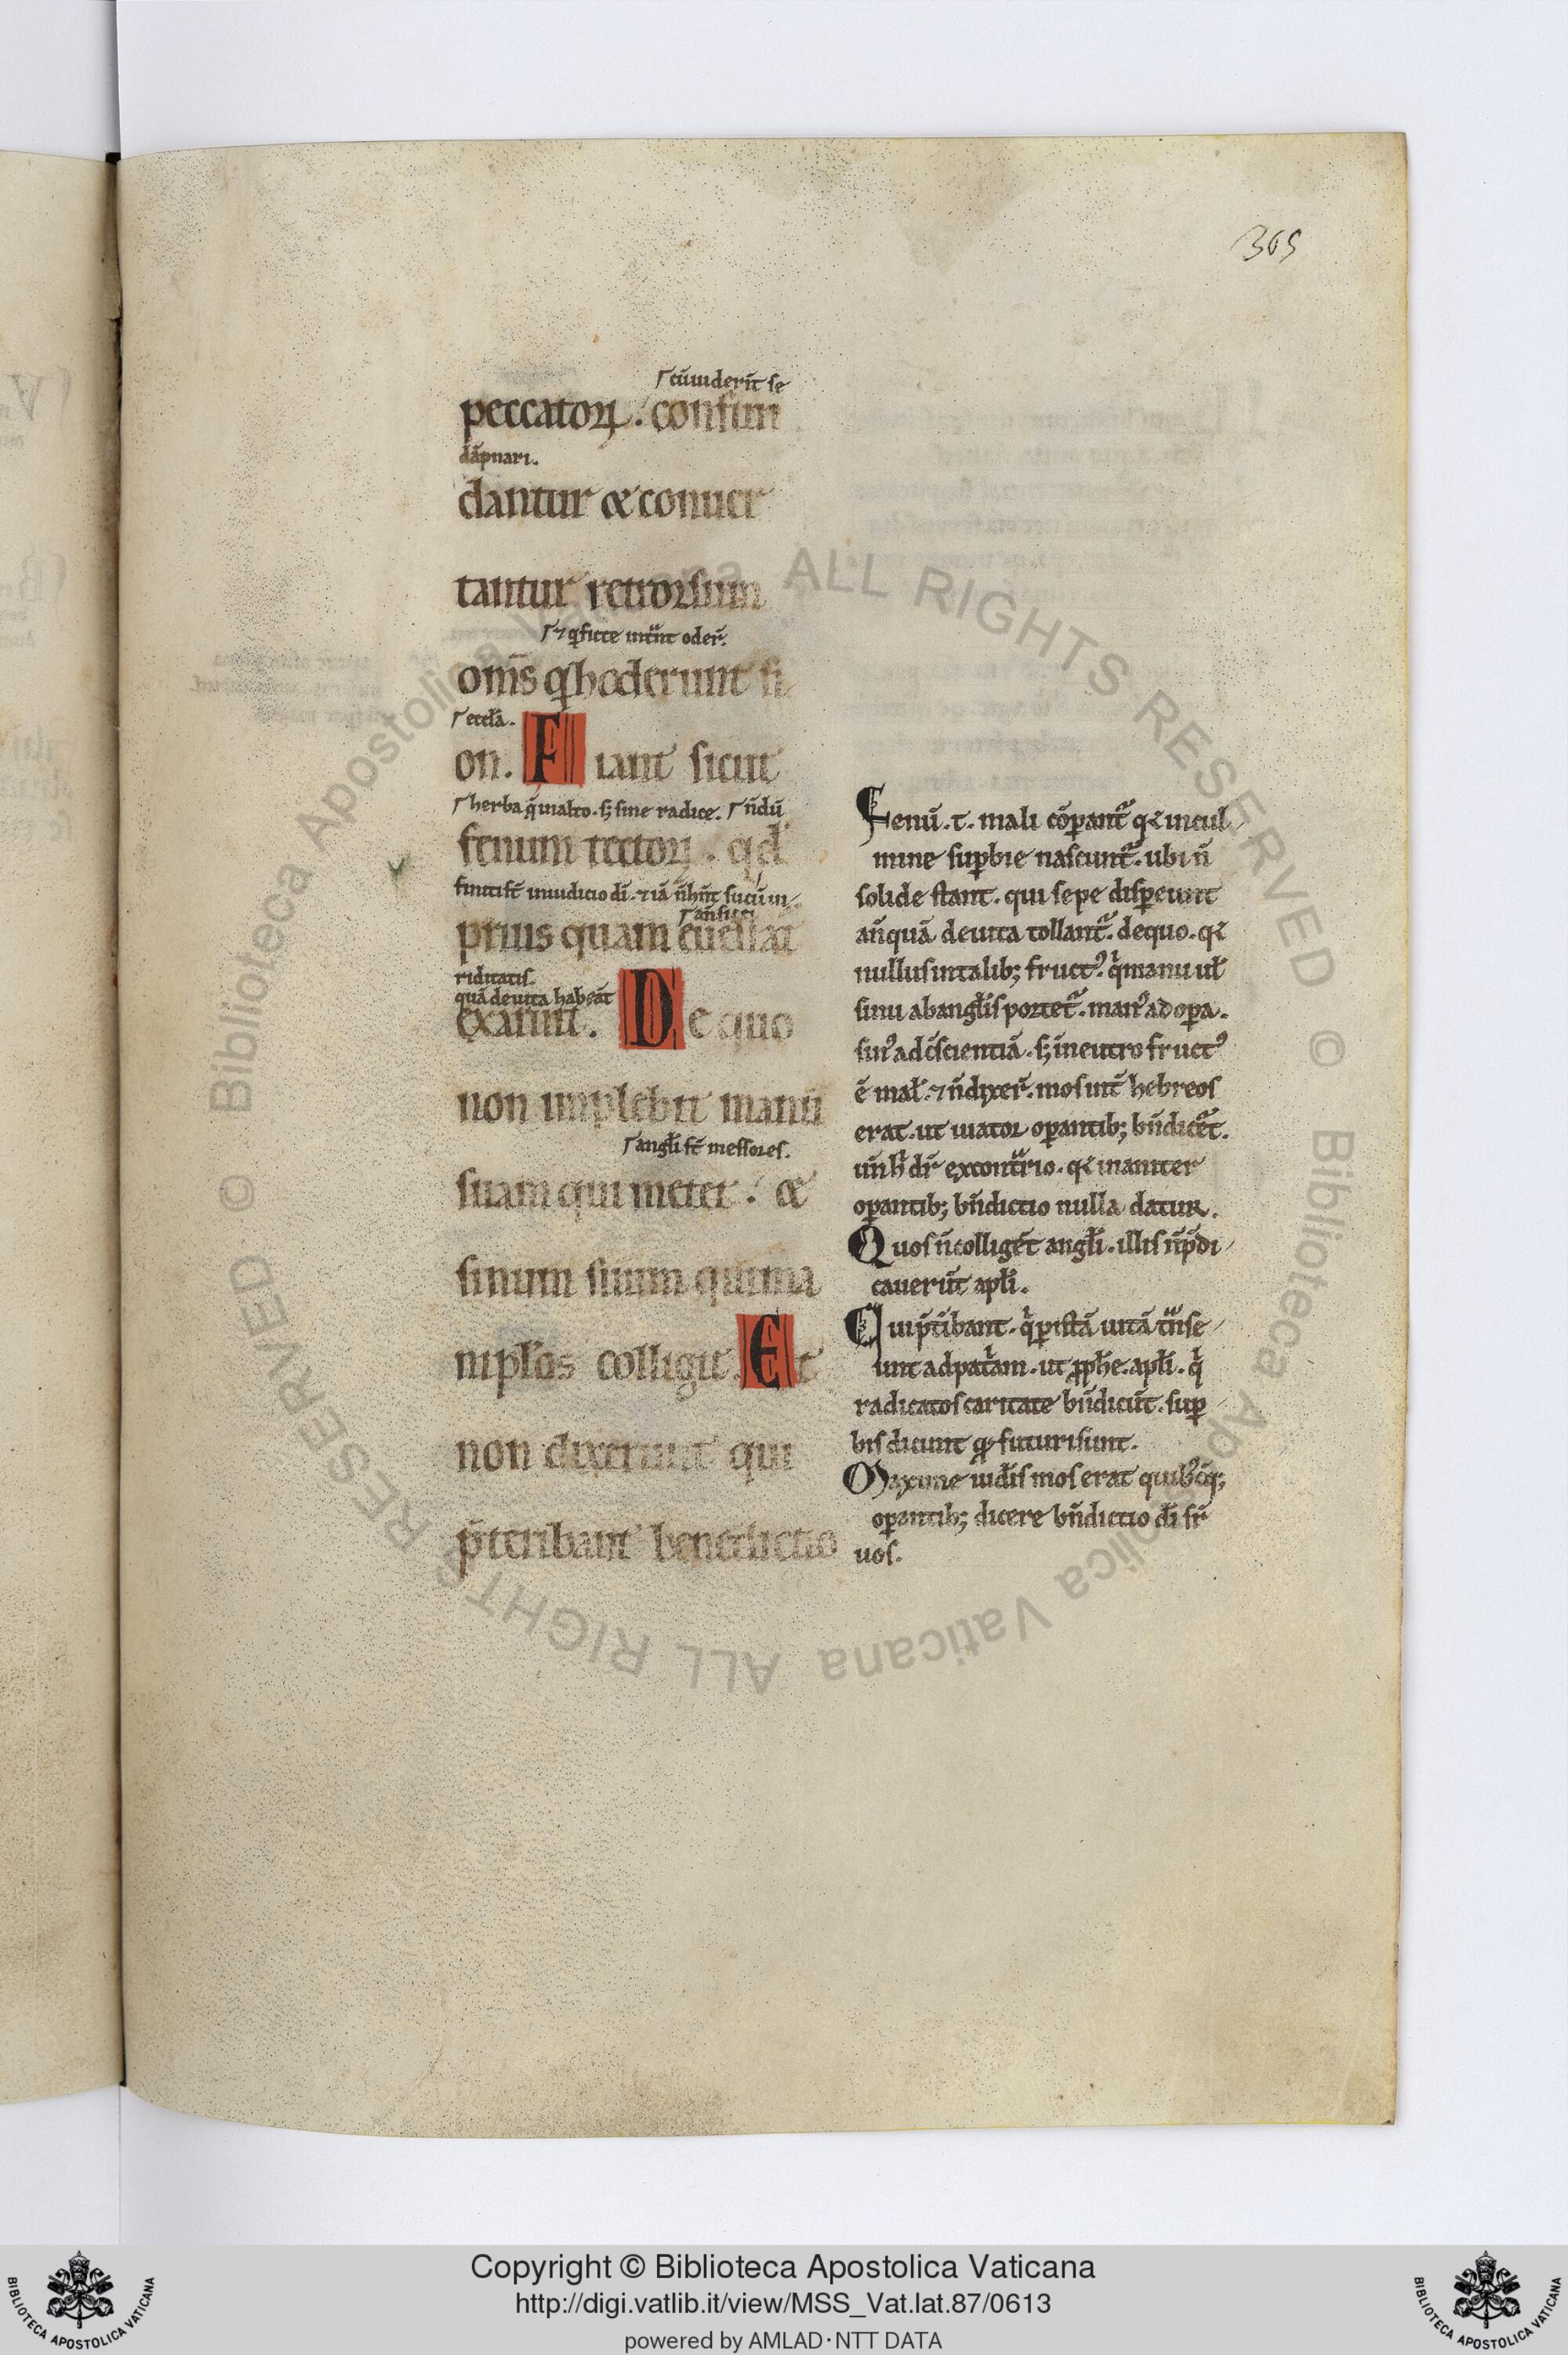 365
cū uiderīt se
peccatoꝝ. confun
dāpnari.
dantur & conuer
tantur retrorsum
⁊ q̇ ficte intᵃnt oder̄.
om̄s q̇ hoderunt si
eccl̄a.
on. Fiant sicut
herba q̄ in alto. sꝫ sine radice. n̄dū
fenum tectoꝝ. qd̄
finiti st̄ in iudicio dī. ⁊ iā n̄ hn̄t sucū ui
prius quam euellat
riditatis.
quā de uita habeāt
exaruit. De quo
non impleb̄it manū
angl̄i st̄ messores.
suam qui metet. &
sinum suum qui ma
nipl̄os colligit. Et
non dixerunt qui
p̄teribant benedictio
Fenū. t. mali cōparantᵃ qꝛ in cul
mine suꝑbie nascuntᵃ. ubi n̄
solide stant. qui sepe disꝑeunt
an̄quā de uita tollantᵃ. de quo. qꝛ
nullus in talibꝫ fructꝰ. q̇ manu ul̄
sinu ab angl̄is portetᵃ. manꝰ ad oꝑa.
sinꝰ ad c̄scientiā. sꝫ in eutro fructꝰ
ē mal̄. ⁊ n̄ dixer̄. mos int̄ hebreos
erat. ut uiator oꝑantibꝫ bn̄dicēt.
un̄ h̄ dr̄ ex contᵃrio. qꝛ inaniter
oꝑantibꝫ bn̄dictio nulla datur.
Quos n̄ colligēt angl̄i. illis n̄ p̄di
cauerūt apl̄i.
Qui p̄tibant. q̇ ꝑ istā uitā tᵃnse
unt ad patᵃam. ut ꝓph̄e. apl̄i. q̇
radicatos caritate bn̄dicūt. suꝑ
bis dicunt qꝫ futuri sunt.
Maxime iud̄is mos erat quibꝰcūqꝫ
oꝑantibꝫ dicere bn̄dictio dn̄i sr̄
uos.
© Biblioteca Apostolica Vaticana ALL RIGHTS RESERVED © Biblioteca Apostolica Vaticana ALL RIGHTS RESERVED
Copyright © Biblioteca Apostolica Vaticana
http://digi.vatlib.it/view/MSS_Vat.lat.87/0613
powered by AMLAD·NTT DATA
BIBLIOTECA APOSTOLICA VATICANA
BIBLIOTECA APOSTOLICA VATICANA